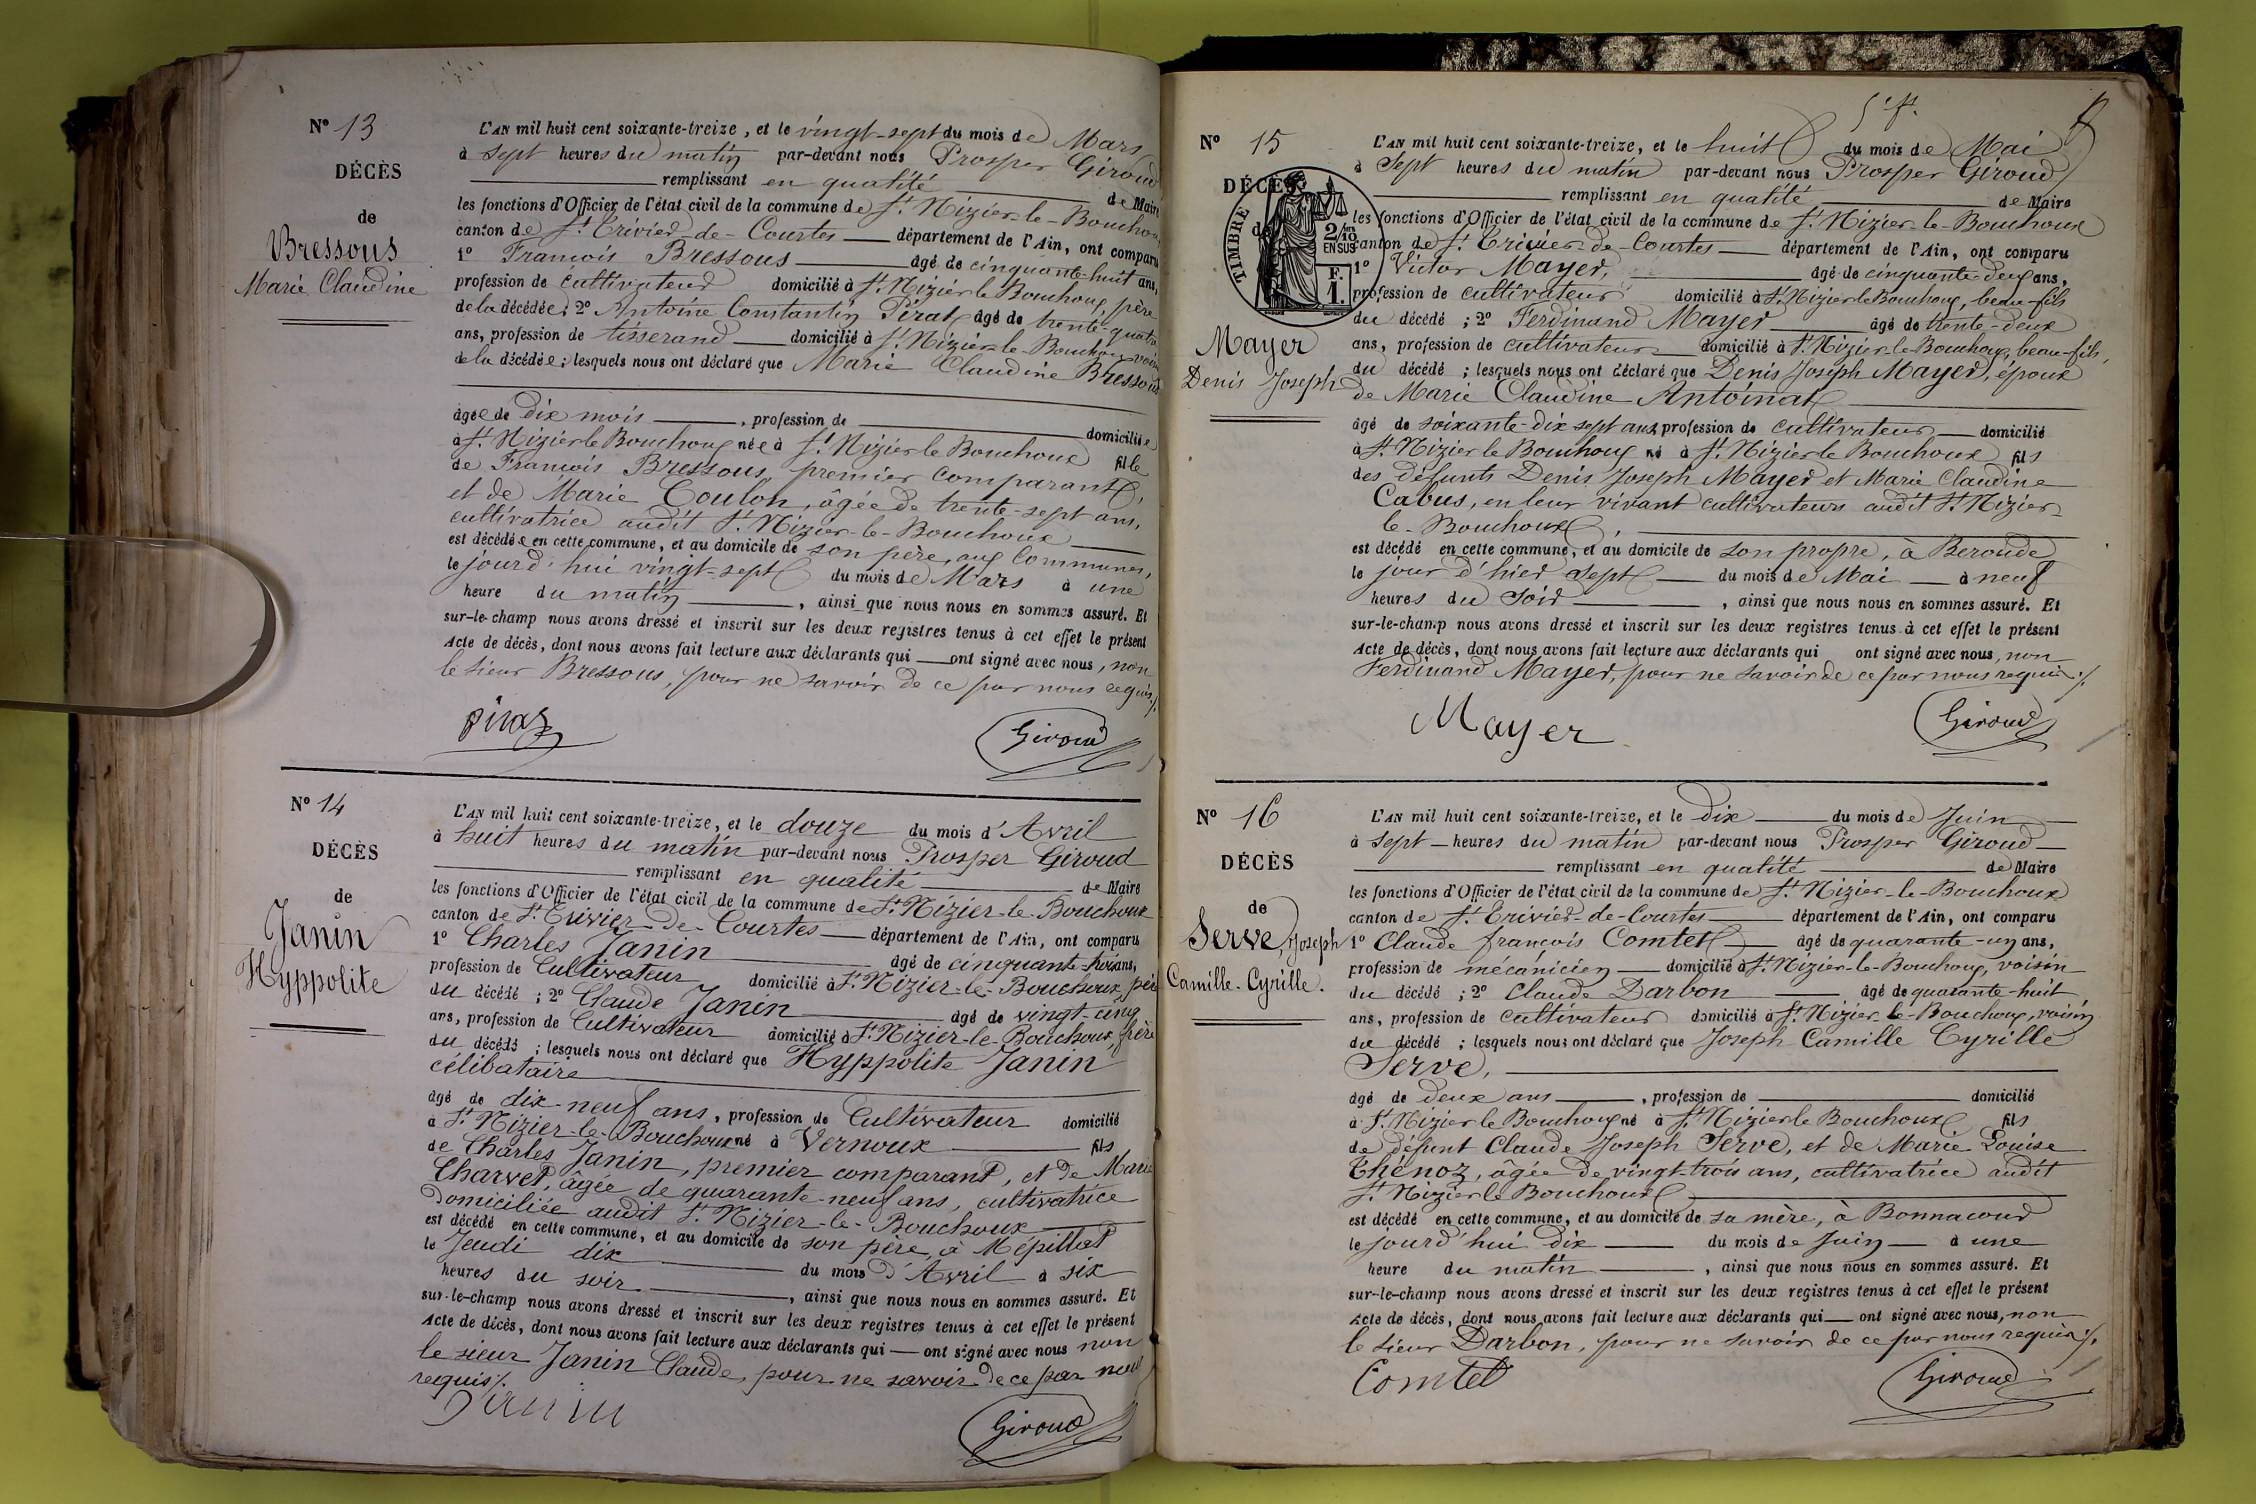 N° 13
DÉCÈS
de
Bressous
Marie Claudine
L'AN mil huit cent soixante-treize, et le vingt-sept du mois de Mars
à sept heures du matin par-devant nous Prosper Giroud
remplissant en qualité de Maire
les fonctions d'Officier de l'état civil de la commune de St Nizier-le-Bouchoux
canton de St Trivier-de-Courtes département de l'Ain, ont comparu
1° François Bressous âgé de cinquante-huit ans,
profession de cultivateur domicilié à St Nizier le Bouchoux, père
de la décédée; 2° Antoine Constantin Pirat âgé de trente-quatre
ans, profession de tisserand domicilié à St Nizier-le-Bouchoux voisin
de la décédée; lesquels nous ont déclaré que Marie Claudine Bressous
âgée de dix mois, profession de domiciliée
à St Nizier le Bouchoux née à St Nizier le Bouchoux fille
de François Bressous, premier comparant,
et de Marie Coulon, âgée de trente-sept ans,
cultivatrice audit St Nizier-le-Bouchoux
est décédée en cette commune, et au domicile de son père, aux Communes,
le jourd'hui vingt-sept du mois de Mars à une
heure du matin, ainsi que nous nous en sommes assuré. Et
sur-le-champ nous avons dressé et inscrit sur les deux registres tenus à cet effet le présent
Acte de décès, dont nous avons fait lecture aux déclarants qui ont signé avec nous, non
le sieur Bressous, pour ne savoir de ce par nous requis ./.
Pirat Giroud
N° 14
DÉCÈS
de
Janin
Hyppolite
L'AN mil huit cent soixante-treize, et le douze du mois d'Avril
à huit heures du matin par-devant nous Prosper Giroud
remplissant en qualité de Maire
les fonctions d'Officier de l'état civil de la commune de St Nizier-le-Bouchoux
canton de St Trivier-de-Courtes département de l'Ain, ont comparu
1° Charles Janin âgé de cinquante-trois ans,
profession de Cultivateur domicilié à St Nizier-le-Bouchoux, père
du décédé; 2° Claude Janin âgé de vingt-cinq
ans, profession de Cultivateur domicilié à St Nizier-le-Bouchoux, frère
du décédé; lesquels nous ont déclaré que Hyppolite Janin
célibataire
âgé de dix-neuf ans, profession de Cultivateur domicilié
à St Nizier-le-Bouchoux né à Vernoux fils
de Charles Janin, premier comparant, et de Marie
Charvet, âgée de quarante-neuf ans, cultivatrice
domiciliée audit St Nizier-le-Bouchoux
est décédé en cette commune, et au domicile de son père, à Mépillat
le Jeudi dix du mois d'Avril à six
heures du soir, ainsi que nous nous en sommes assuré. Et
sur-le-champ nous avons dressé et inscrit sur les deux registres tenus à cet effet le présent
Acte de décès, dont nous avons fait lecture aux déclarants qui ont signé avec nous non
le sieur Janin Claude, pour ne savoir de ce par nous
requis ./.
Janin Giroud
5e f.
N° 15
DÉCÈS
de
TIMBRE
2/10
EN SUS
F.
1.
Mayer
Denis Joseph
L'AN mil huit cent soixante-treize, et le huit du mois de Mai
à Sept heures du matin par-devant nous Prosper Giroud
remplissant en qualité de Maire
les fonctions d'Officier de l'état civil de la commune de St Nizier-le-Bouchoux
canton de St Trivier-de-Courtes département de l'Ain, ont comparu
1° Victor Mayer, âgé de cinquante-deux ans,
profession de cultivateur domicilié à St Nizier le Bouchoux, beau-fils
du décédé; 2° Ferdinand Mayer âgé de trente-deux
ans, profession de cultivateur domicilié à St Nizier-le-Bouchoux, beau-fils,
du décédé; lesquels nous ont déclaré que Denis Joseph Mayer, époux
de Marie Claudine Antoinat
âgé de soixante-dix sept ans, profession de cultivateur domicilié
à St Nizier le Bouchoux né à St Nizier le Bouchoux fils
des défunts Denis Joseph Mayer et Marie Claudine
Cabus, en leur vivant cultivateurs audit St Nizier-
le-Bouchoux,
est décédé en cette commune, et au domicile de son propre, à Beroude
le jour d'hier Sept du mois de Mai à neuf
heures du Soir, ainsi que nous nous en sommes assuré. Et
sur-le-champ nous avons dressé et inscrit sur les deux registres tenus à cet effet le présent
Acte de décès, dont nous avons fait lecture aux déclarants qui ont signé avec nous, non
Ferdinand Mayer, pour ne savoir de ce par nous requis ./.
Mayer Giroud
N° 16
DÉCÈS
de
Serve, Joseph
Camille-Cyrille.
L'AN mil huit cent soixante-treize, et le dix du mois de Juin
à sept heures du matin par-devant nous Prosper Giroud
remplissant en qualité de Maire
les fonctions d'Officier de l'état civil de la commune de St Nizier-le-Bouchoux
canton de St Trivier-de-Courtes département de l'Ain, ont comparu
1° Claude françois Comtet âgé de quarante-un ans,
profession de mécanicien domicilié à St Nizier-le-Bouchoux, voisin
du décédé; 2° Claude Darbon âgé de quarante-huit
ans, profession de cultivateur domicilié à St Nizier-le-Bouchoux, voisin
du décédé; lesquels nous ont déclaré que Joseph Camille Cyrille
Serve,
âgé de deux ans, profession de domicilié
à St Nizier le Bouchoux né à St Nizier le Bouchoux fils
de défunt Claude Joseph Serve, et de Marie Louise
Thenoz, âgée de vingt-trois ans, cultivatrice audit
St Nizier le Bouchoux
est décédé en cette commune, et au domicile de sa mère, à Bonnacour
le jourd'hui dix du mois de Juin à une
heure du matin, ainsi que nous nous en sommes assuré. Et
sur-le-champ nous avons dressé et inscrit sur les deux registres tenus à cet effet le présent
Acte de décès, dont nous avons fait lecture aux déclarants qui ont signé avec nous, non
le sieur Darbon, pour ne savoir de ce par nous requis ./.
Comtet Giroud